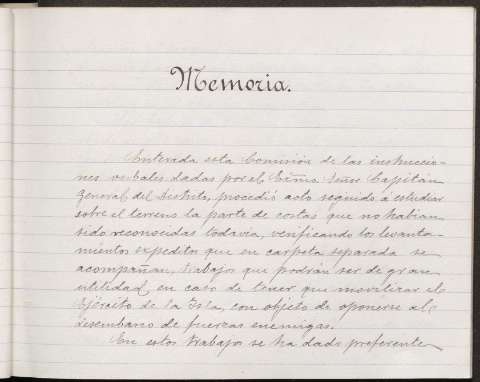 Memoria.
Enterada esta Comisión de las instruccio-
nes verbales dadas por el Exmo. Señor Capitán
General del Distrito, procedió acto seguido a estudiar
sobre el terreno la parte de costas que no habían
sido reconocidas todavía, verificando los levanta-
mientos expeditos que en carpeta separada se
acompañan, trabajos que podrán ser de gran
utilidad, en caso de tener que movilizar el
Ejército de la Isla, con objeto de oponerse al
desembarco de fuerzas enemigas.
En estos trabajos se ha dado preferente